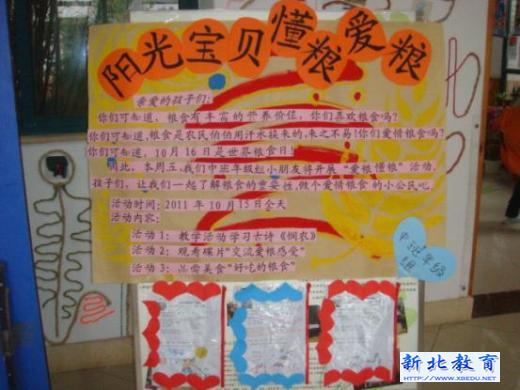 阳光宝贝懂粮爱粮
亲爱的孩子们：
你们可知道，粮食有丰富的营养价值，你们喜欢粮食吗？
你们可知道，粮食是农民伯伯用汗水换来的，来之不易！你们爱惜粮食吗？
你们可知道，10月16日是世界粮食日！
因此，本周五，我们中班年级组小朋友将开展“爱粮懂粮”活动，
孩子们，让我们一起了解粮食的重要性，做个爱惜粮食的小公民吧。
活动时间：2011年10月15日全天
活动内容：
活动1：教学活动学习古诗《悯农》
活动2：观看碟片“交流爱粮感受”
活动3：品尝美食“好吃的粮食”
中班年级
组
新北教育
HTTP://WWW.XBEDU.NET